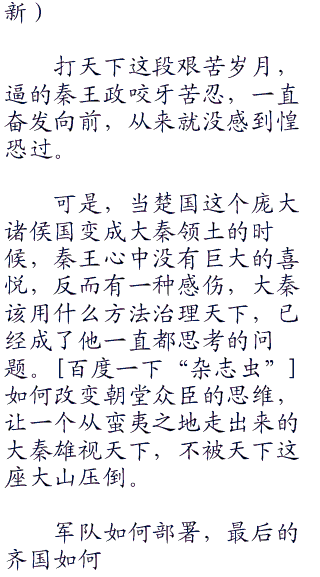 新）
打天下这段艰苦岁月，
逼的秦王政咬牙苦忍，一直
奋发向前，从来就没感到惶
恐过。
可是，当楚国这个庞大
诸侯国变成大秦领土的时
候，秦王心中没有巨大的喜
悦，反而有一种感伤，大秦
该用什么方法治理天下，已
经成了他一直都思考的问
题。[百度一下“杂志虫”]
如何改变朝堂众臣的思维，
让一个从蛮夷之地走出来的
大秦雄视天下，不被天下这
座大山压倒。
军队如何部署，最后的
齐国如何